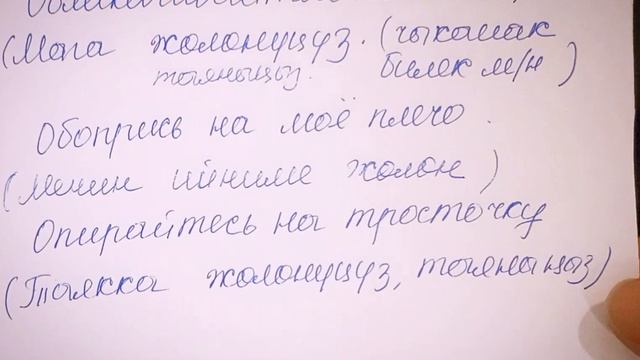 (Мага жөлөнүңүз. (чыканак
таяныңыз. билек м/н)
Обопрись на моё плечо.
(менин ийниме жөлөн)
Опирайтесь на тросточку
(Таякка жөлөнүңүз, таяныңыз)